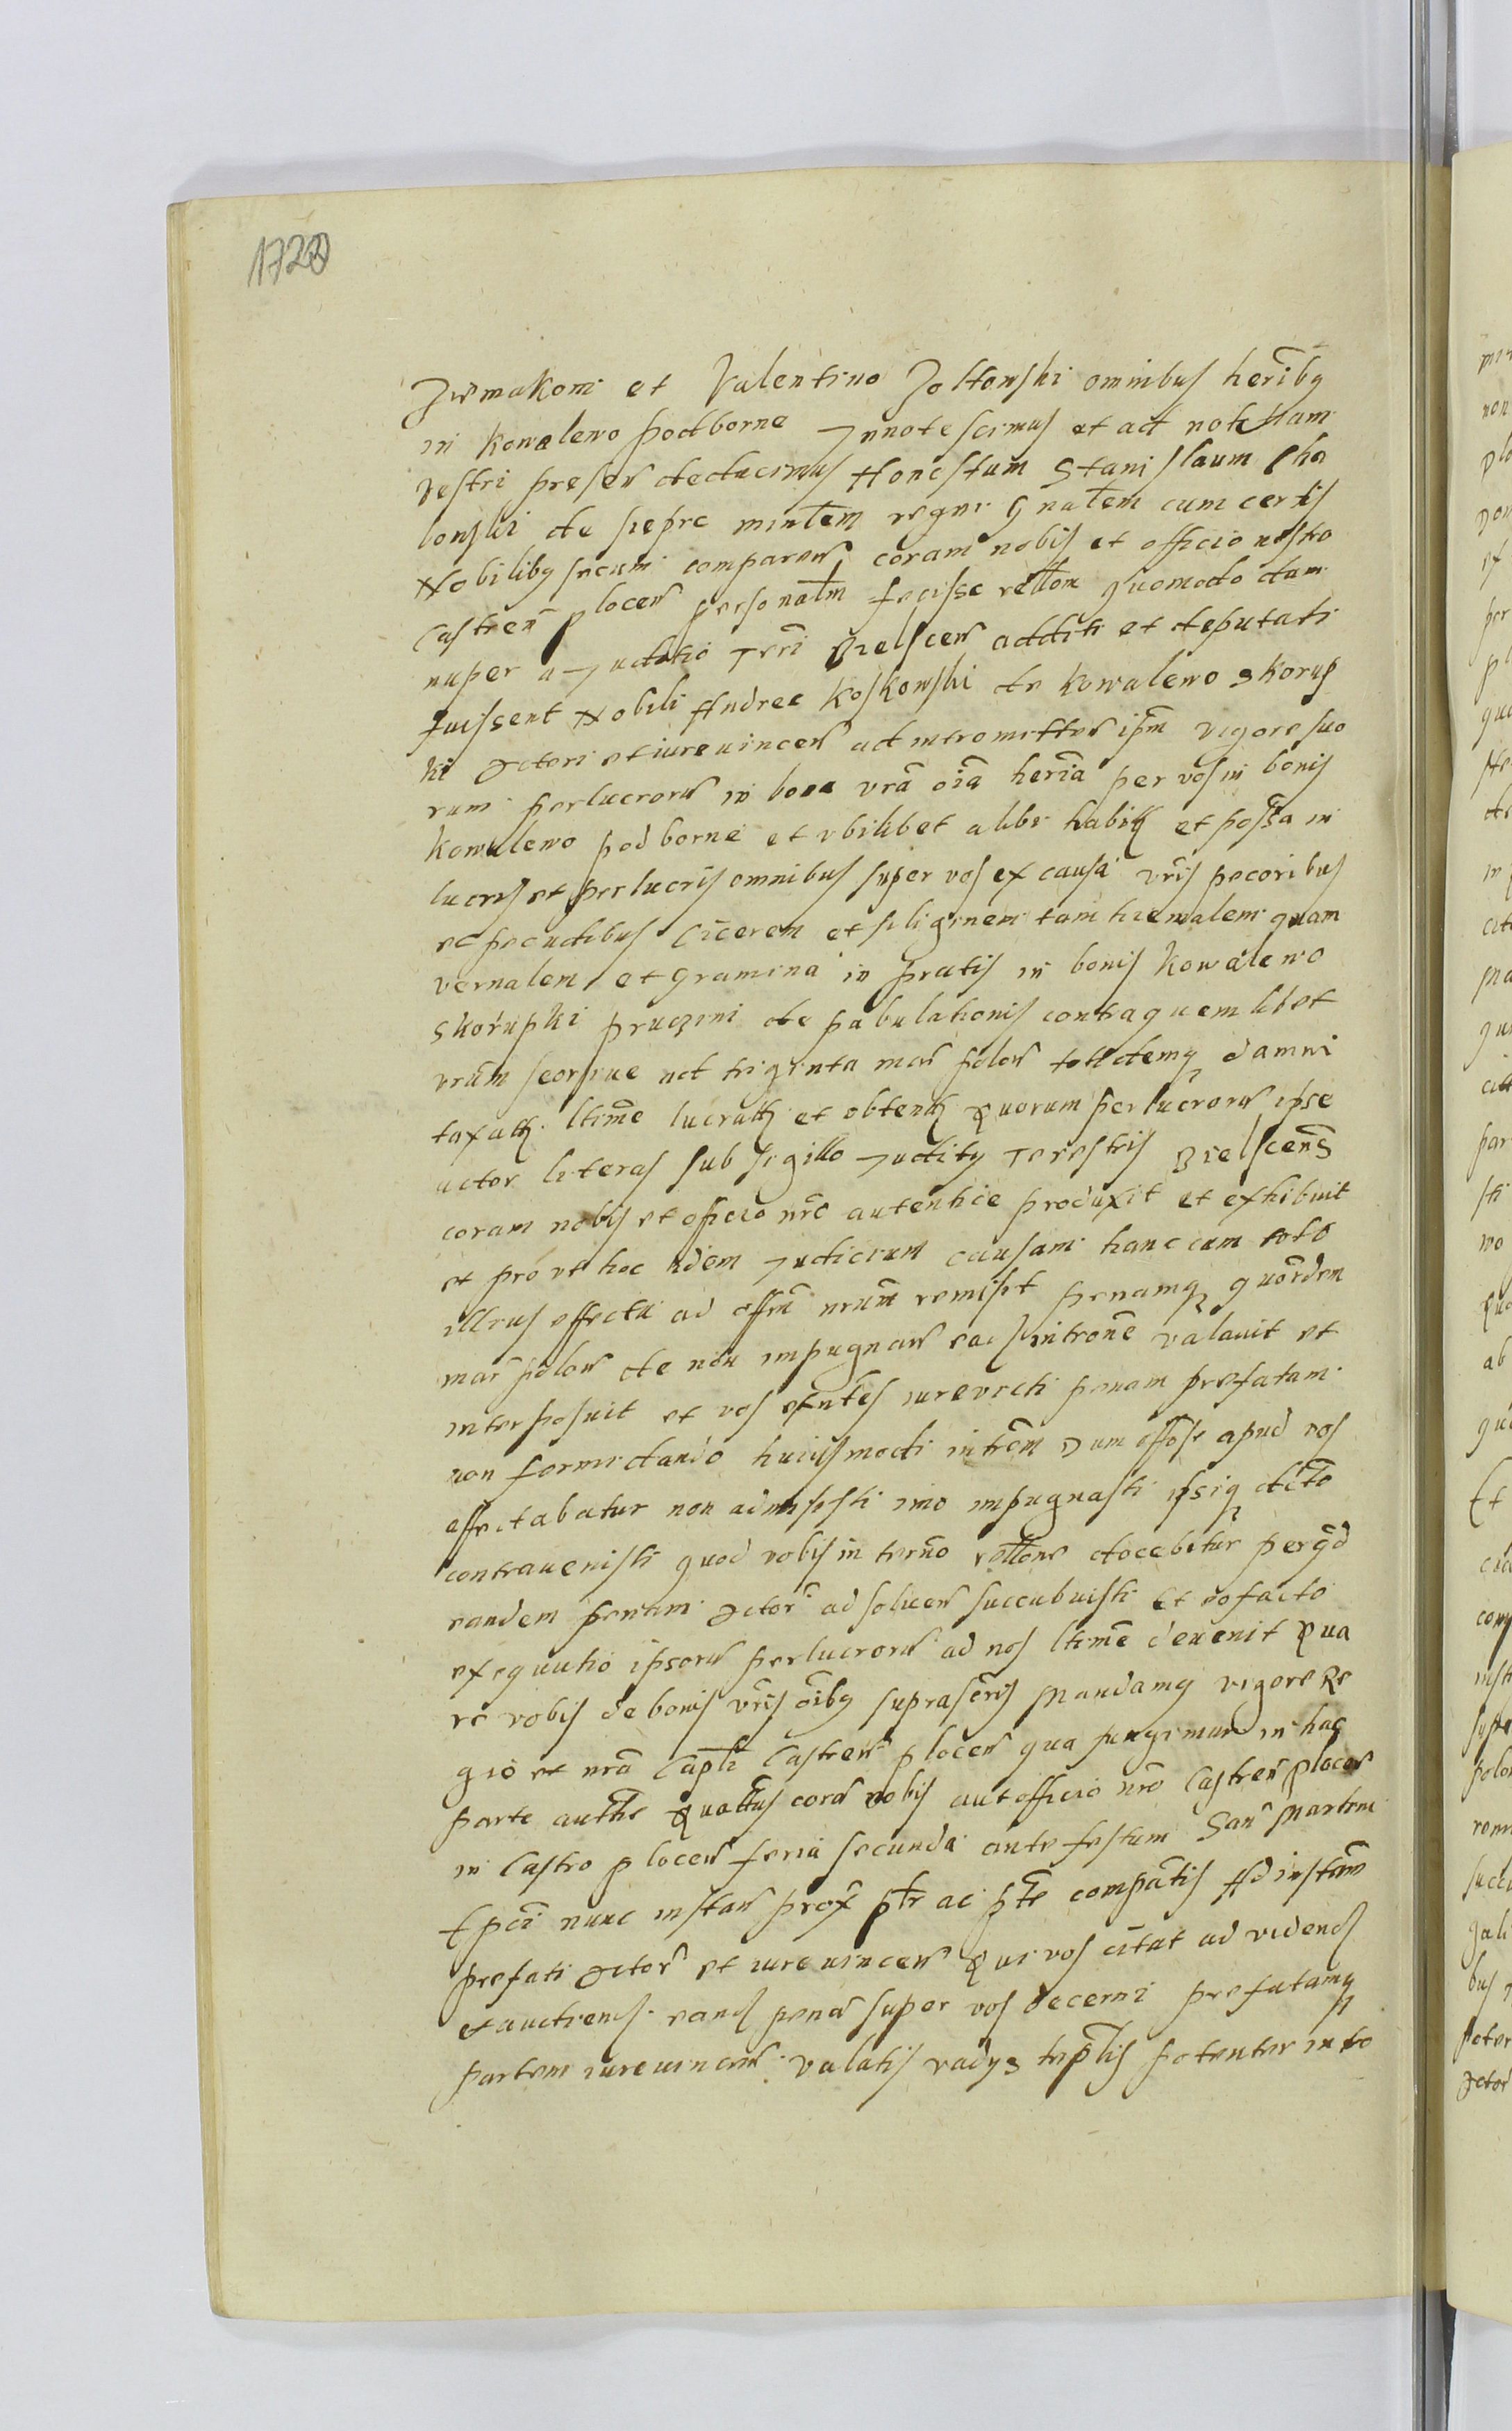 1728
Zirmakom et Valentino Zoltonski omnibus heribq
in Kowalewo podborne Innotescimus et ad notitiam
vestri presen deducimus Honestum Stanislaum Cho
lonski de sieprc mintem regni Gnalem cum certis
Nobilibq secum comparen coram nobis et officio nostro
Castren plocen personalm fecisse rellom quomodo dum
nuper a Judicio Trri Bielscen additi et deputati
fuissent Nobili Andree Koskowski de Kowalewo Skorup
ki Actori et iurevincen ad intromitten ipm vigore suo
rum perlucroru in bona vra oia heria per vos in bonis
Kowalewo podborne et vbilibet alibi habit et possa in
lucris et perlucris omnibus super vos ex causa vris pecoribus
ec pecudibus Cicerem et siliginem tam hiemalem quam
vernalem et gramina in pratis in bonis Kowalewo
Skorupki pruczini de pabulationis contra quemlibet
vrum seorsiue not triginta mar polon totidemq damni
taxatt ltime lucratt et obtent Quorum perlucroru ipse
actor literas sub sigillo Judicy Terestris Bielscens
coram nobis et officio nro autentice produxit et exhibuit
et pro vt hoc idem Judicium causam hanc cum toto
illius effectu ad offm nrum remisit penamq quordem
mar polon de non impugnan eas introne valauit et
interposuit et vos exntes iurevicti penam prefatam
non formidando huiusmodi intrem Dum offose apud vos
affectabatur non admisisti imo impugnasti ipsiq dicto
contrauenisti quod vobis in termo rellone docebitur per qd
eandem penam Actori ad soluen succubuisti Et eo facto
exequutio ipsoru perlucroru ad nos ltime deuenit Qua
re vobis de bonis vris oibq suprascris Mandamq vigore Re
gio et nra Capli Castren plocen qua fungimur in hac
parte authe Quattus cora nobis aut officio nro Castren plocen
in Castro plocen feria secunda ante festum San Martini
Epci nunc instan prox pltr ac pte compatis Ad instam
prefati Actor et iurevincen Qui vos citat ad vidend
et audiend eand pena super vos decerni prefatamq
partem iurevincen valatis vadys triplis potenter into